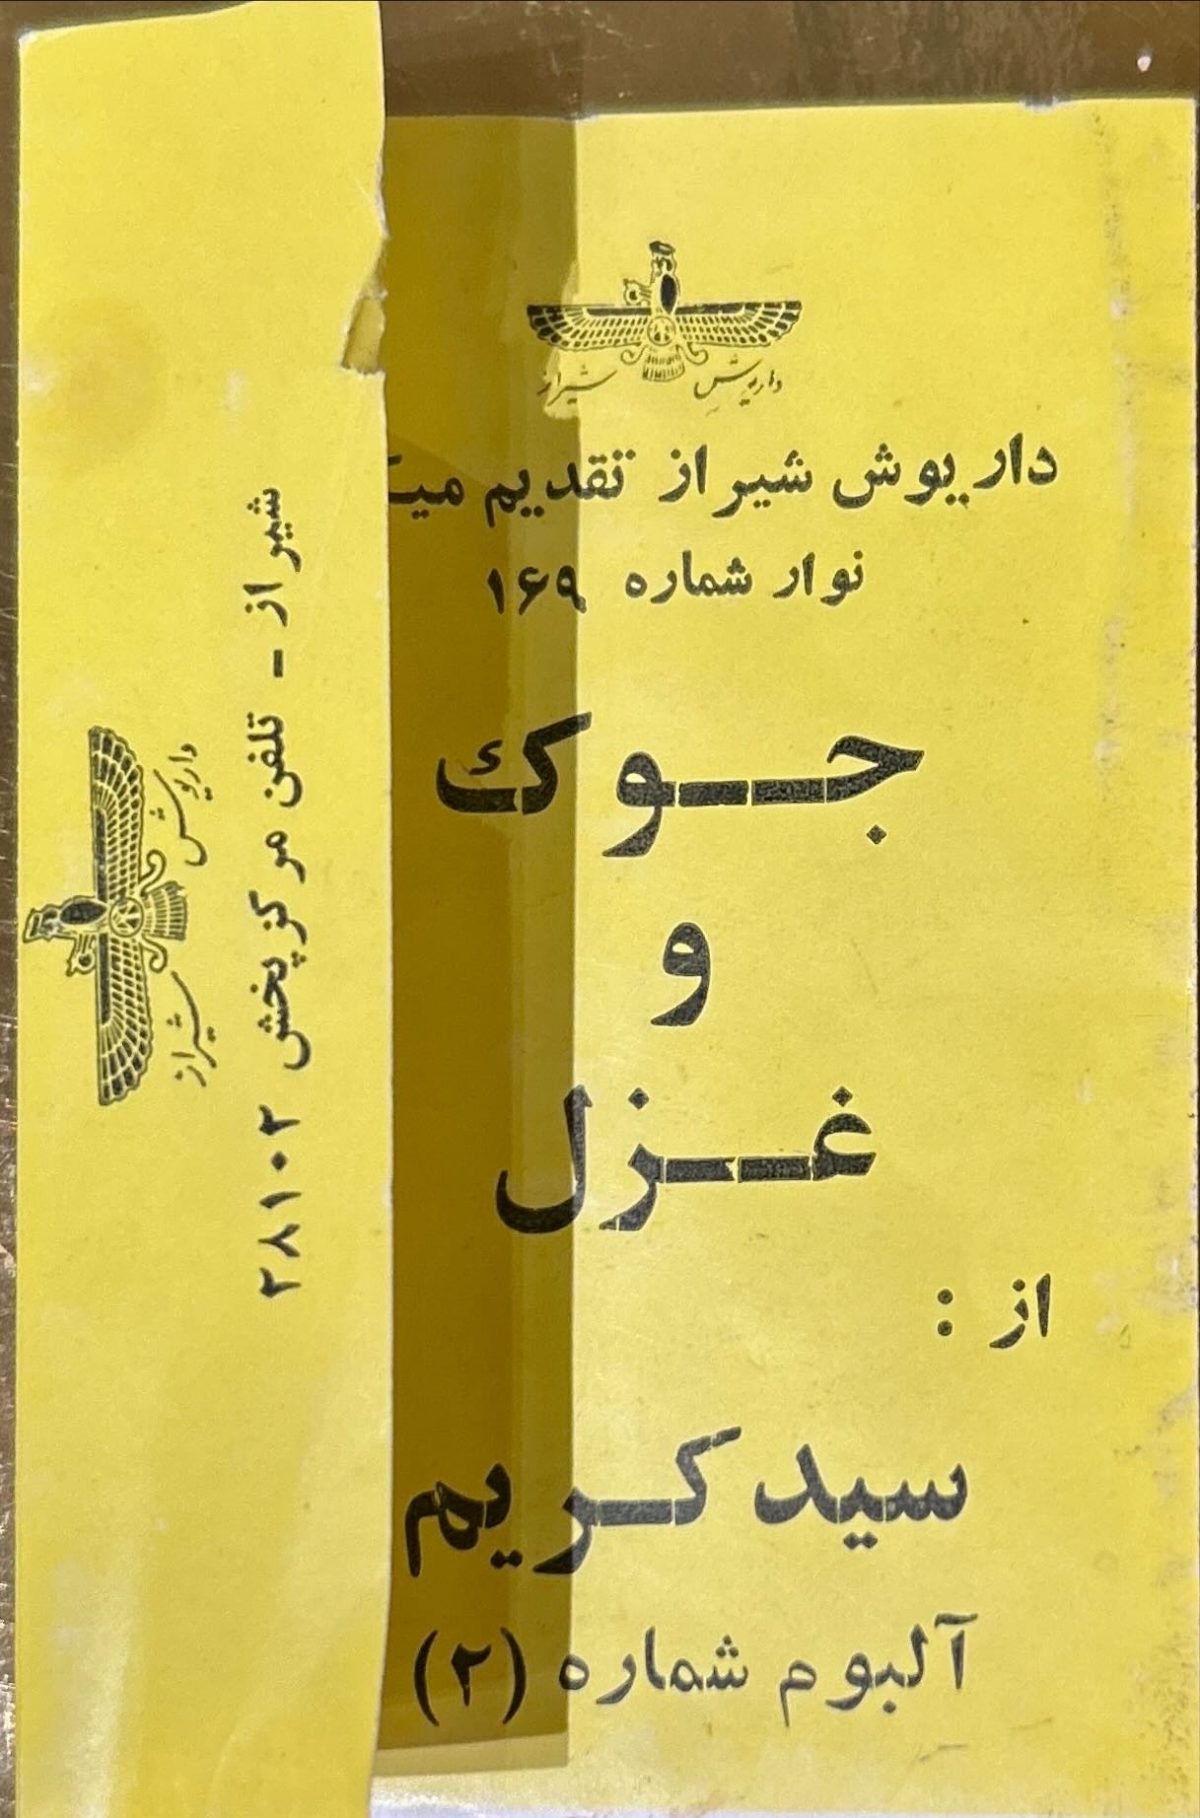 داریوش شیراز
داریوش شیراز تقدیم
نوار شماره ۱۶۹
جوك
و
غزل
از :
سید کریم
آلبوم شماره (۲)
داریوش شیراز
شیراز - تلفن مرکز پخش ۲۸۱۰۲